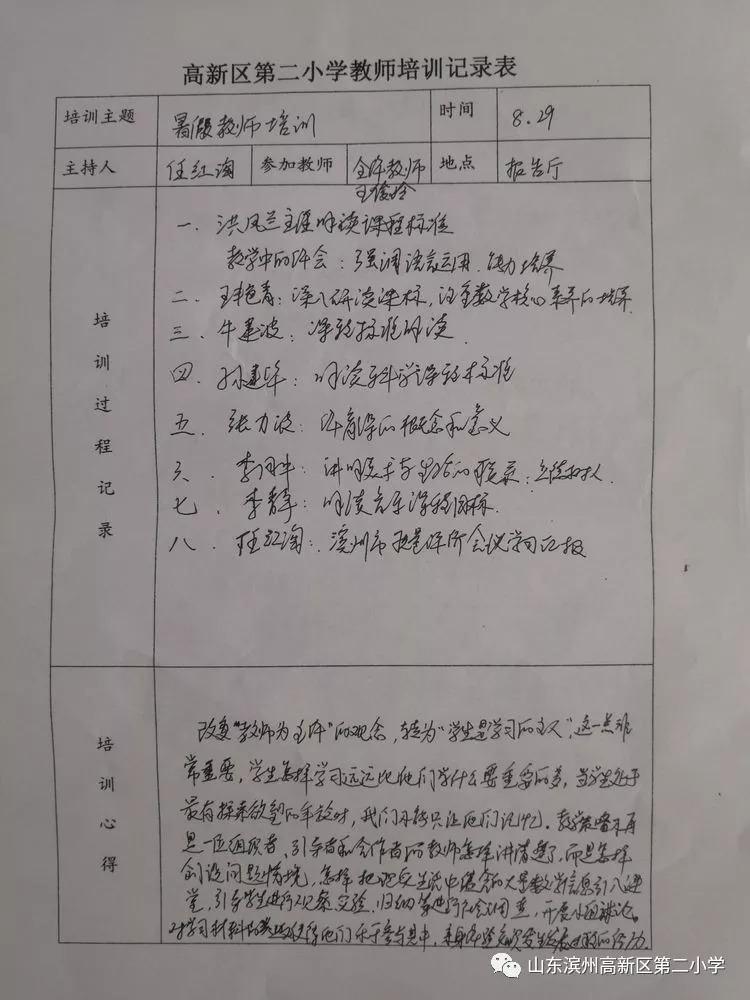 高新区第二小学教师培训记录表
培训主题 暑假教师培训 时间 8.29
主持人 任红淘 参加教师 全体教师 地点 报告厅
培训过程记录
一、洪凤兰主任解读课程标准
教学中的体会：强调语言运用、能力培养
二、王艳青：深入研读课标，注重数学核心素养的培养
三、牛建波：课程标准解读
四、孙建华：解读科学课程标准
五、张力波：体育课的概念和意义
六、李 ：讲明美术与生活的联系：立德树人
七、李青军：解读音乐课程目标
八、任红淘：滨州市 会议学习汇报
培训心得
改变“教师为主体”的观念，转为“学生是学习的主人”，这一点非
常重要，学生怎样学习远远比他们学什么要重要的多，当学生处于
最有探索欲望的年龄时，我们不能只让他们记忆。教学 不再
是一位组织者、引导者和合作者的教师怎样讲清楚了，而是怎样
创设问题情境，怎样把现实生活中 的大量数学信息引入课
堂，引导学生进行观察、实验、归纳 ，开展小组讨论。
对学习材料的 使得他们乐于参与其中，
山东滨州高新区第二小学